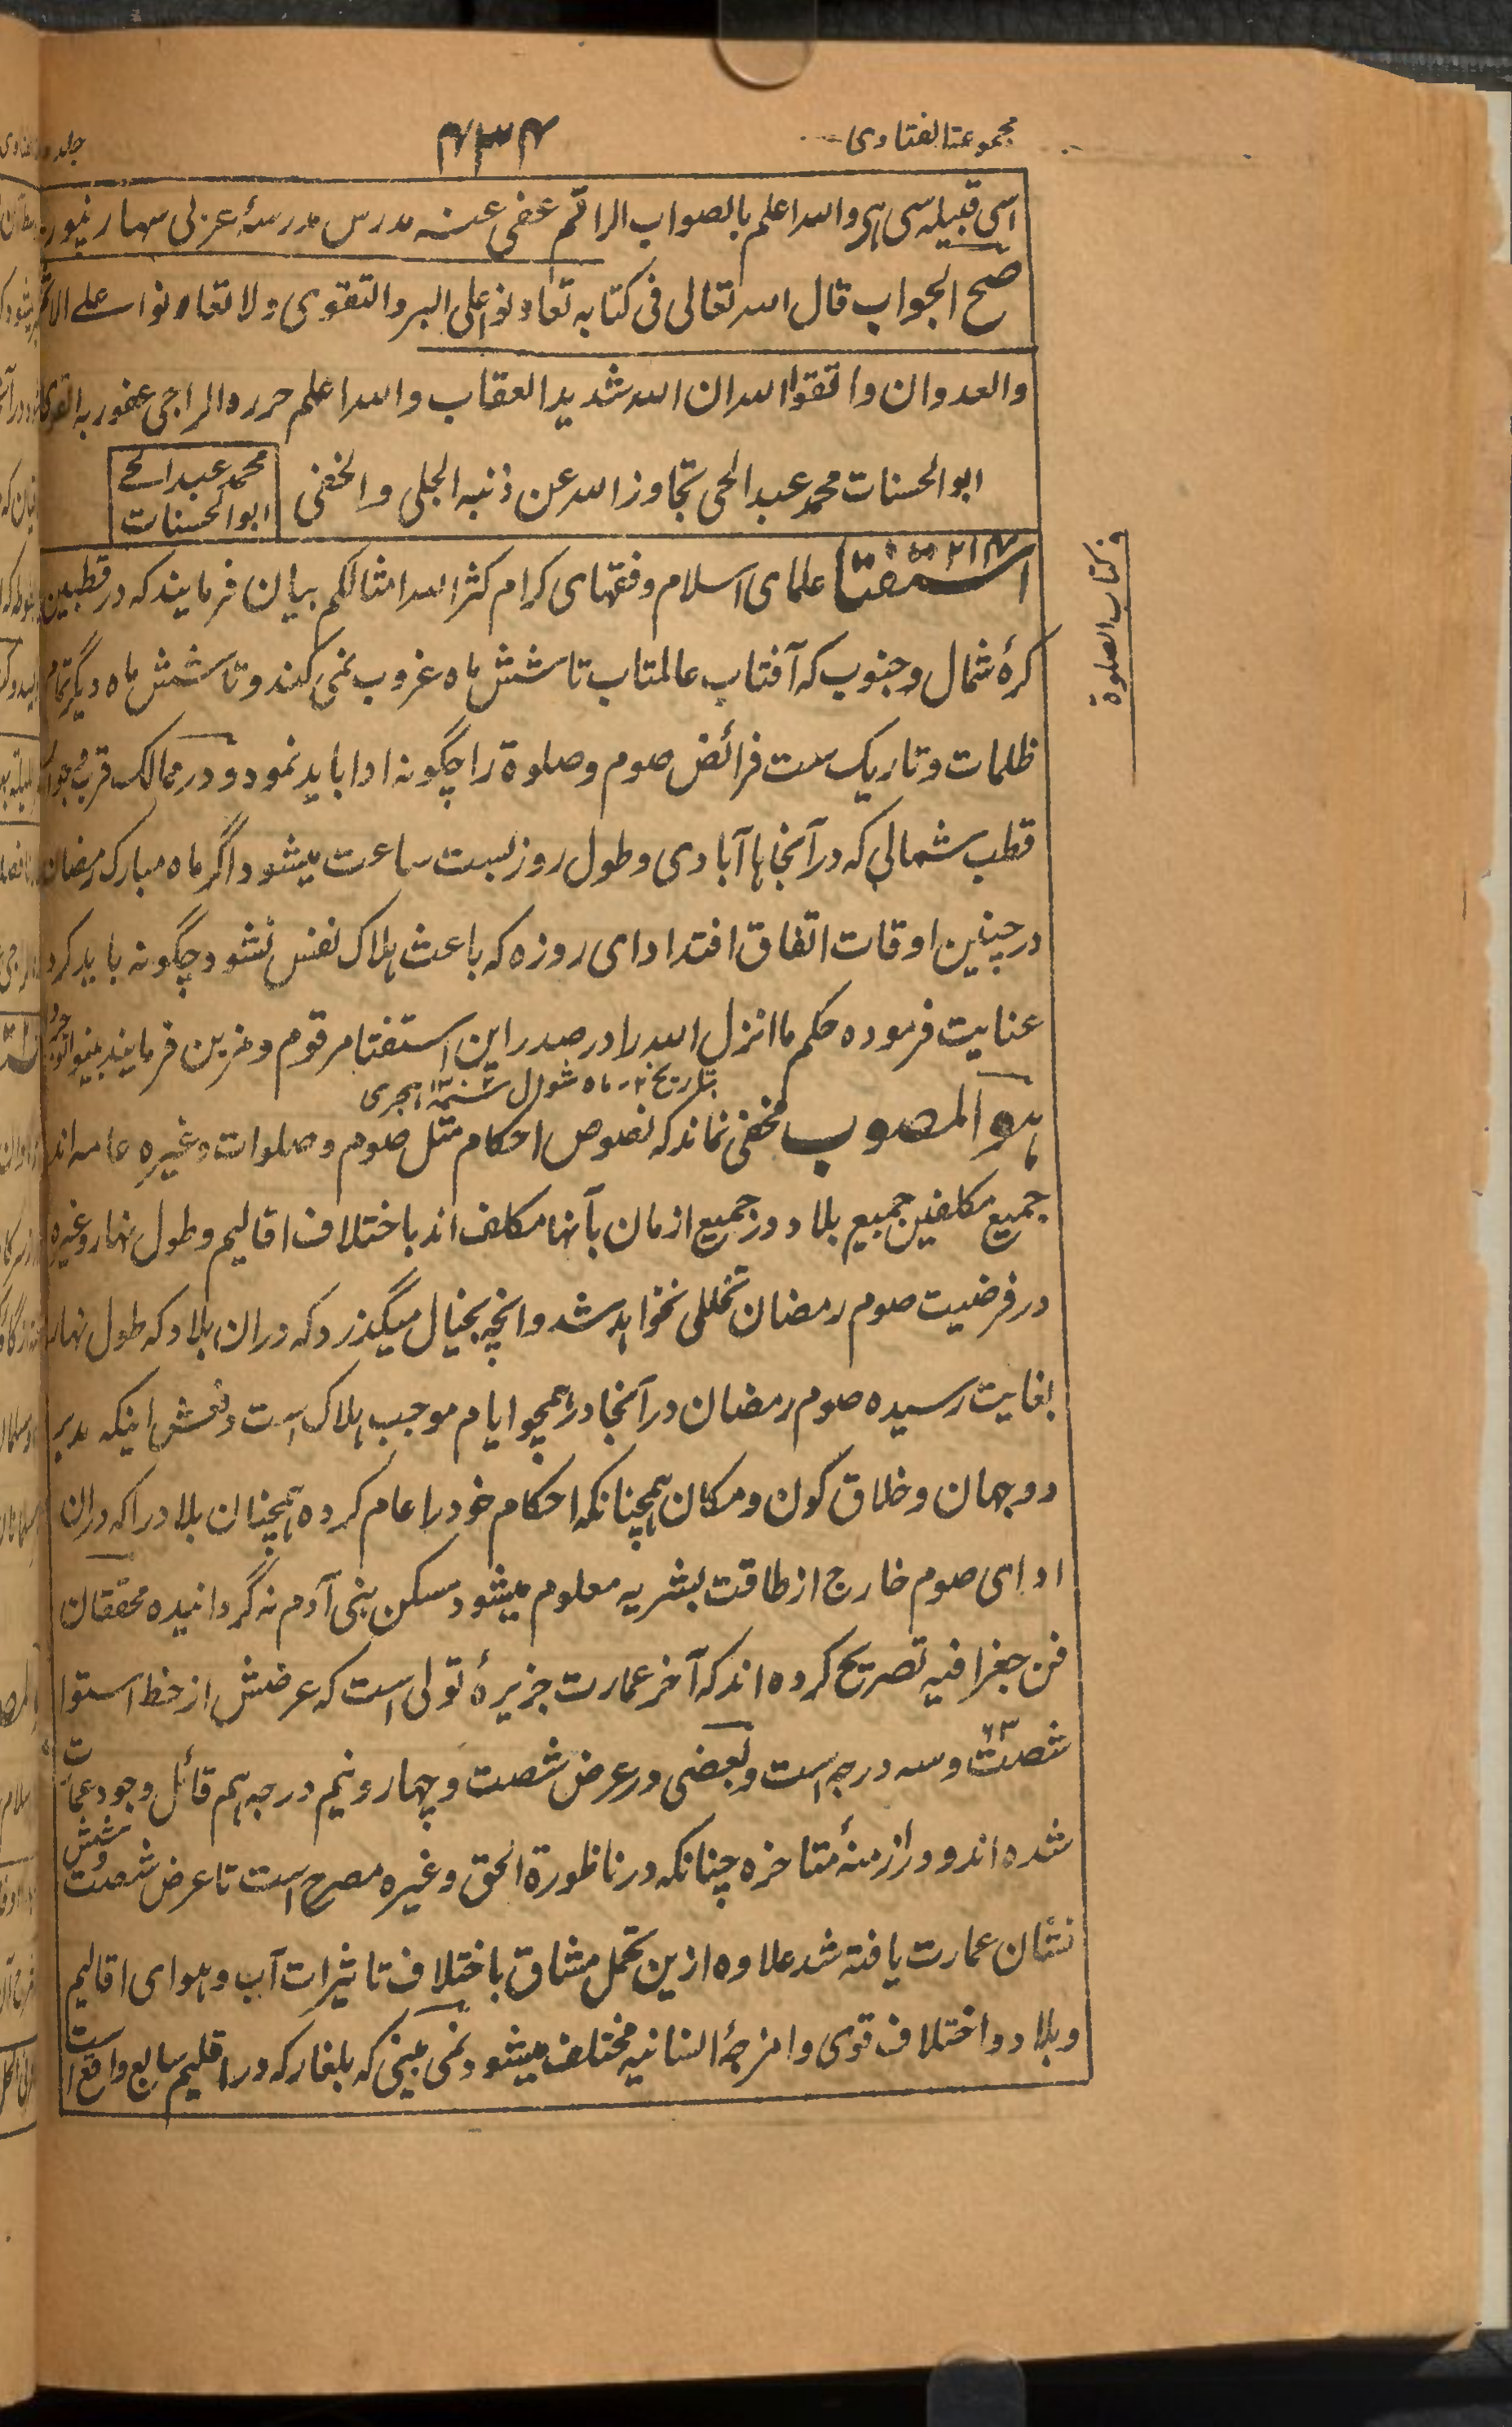 مجموعۃ الفتاوی
۴۳۴
جلد
اسی قبیلہ سی ہی واللہ اعلم بالصواب الراقم عفی عنہ مدرس مدرسۂ عربی سہارنپور
صح الجواب قال اللہ تعالی فی کتابہ تعاونوا علی البر والتقوی ولا تعاونوا علے الاثم
والعدوان واتقوا اللہ ان اللہ شدید العقاب واللہ اعلم حررہ الراجی عفو ربہ القوی
ابو الحسنات محمد عبد الحی تجاوز اللہ عن ذنبہ الجلی والخفی
محمد عبد الحے
ابو الحسنات
استفتا علمای اسلام وفقہای کرام کثر اللہ امثالکم بیان فرمایند کہ در قطبین
کرۂ شمال وجنوب کہ آفتاب عالمتاب تا شش ماہ غروب نمی کند وتا شش ماہ دیگر تمام
ظلمات وتاریک ست فرائض صوم وصلوۃ را چگونہ ادا باید نمود ودر ممالک قرب وجوار
قطب شمالی کہ در آنجاہا آبادی وطول روز بست ساعت میشود اگر ماہ مبارک رمضان
در چنین اوقات اتفاق افتد ادای روزہ کہ باعث ہلاک نفس نشود چگونہ باید کرد
عنایت فرمودہ حکم ما انزل اللہ را در صدر این استفتا مرقوم ومزین فرمایند بینوا توجروا
بتاریخ ۲۰ ماہ شوال ہجری
ہو المصوب مخفی نماند کہ نصوص احکام مثل صوم وصلوات وغیرہ عامہ اند
جمیع مکلفین جمیع بلاد ودر جمیع ازمان بآنہا مکلف اند باختلاف اقالیم وطول نہار وغیرہ
در فرضیت صوم رمضان تخللی نخواہد شد وانچہ بخیال میگذرد کہ دران بلاد کہ طول نہار
بغایت رسیدہ صوم رمضان در آنجا در ہمچو ایام موجب ہلاک است دفعش اینکہ مدبر
دو جہان وخلاق کون ومکان ہمچنانکہ احکام خود را عام کردہ ہمچنان بلاد را کہ دران
ادای صوم خارج از طاقت بشریہ معلوم میشود مسکن بنی آدم نہ گردانیدہ محققان
فن جغرافیہ تصریح کردہ اند کہ آخر عمارت جزیرۂ تولی است کہ عرضش از خط استوا
شصت ۶۳ وسہ درجہ است وبعضی در عرض شصت وچہار ونیم درجہ ہم قائل وجود عمارت
شدہ اند ودر ازمنۂ متاخرہ چنانکہ در ناظورۃ الحق وغیرہ مصرح است تا عرض شصت وشش
نشان عمارت یافتہ شد علاوہ ازین تحمل مشاق باختلاف تاثیرات آب وہوای اقالیم
وبلاد واختلاف قوی وامزجۂ انسانیہ مختلف میشود نمی بینی کہ بلغار کہ در اقلیم سابع واقع است
کتاب الصلوۃ